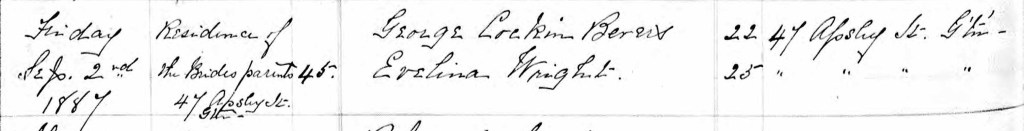 Friday Residence of George Lockin Bevers 22 47 Apsley St. G'tn -
Sep. 2nd the Brides parents 45. Evelina Wright. 25 " " " "
1887 47 Apsley St. G'tn -